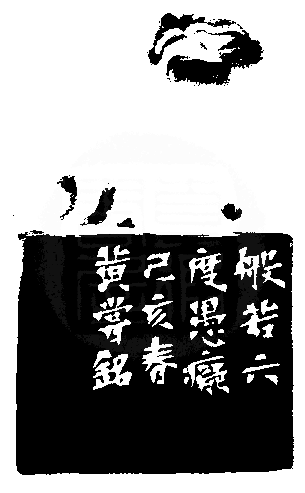 般若六
度愚癡
己亥春
黃嘗銘